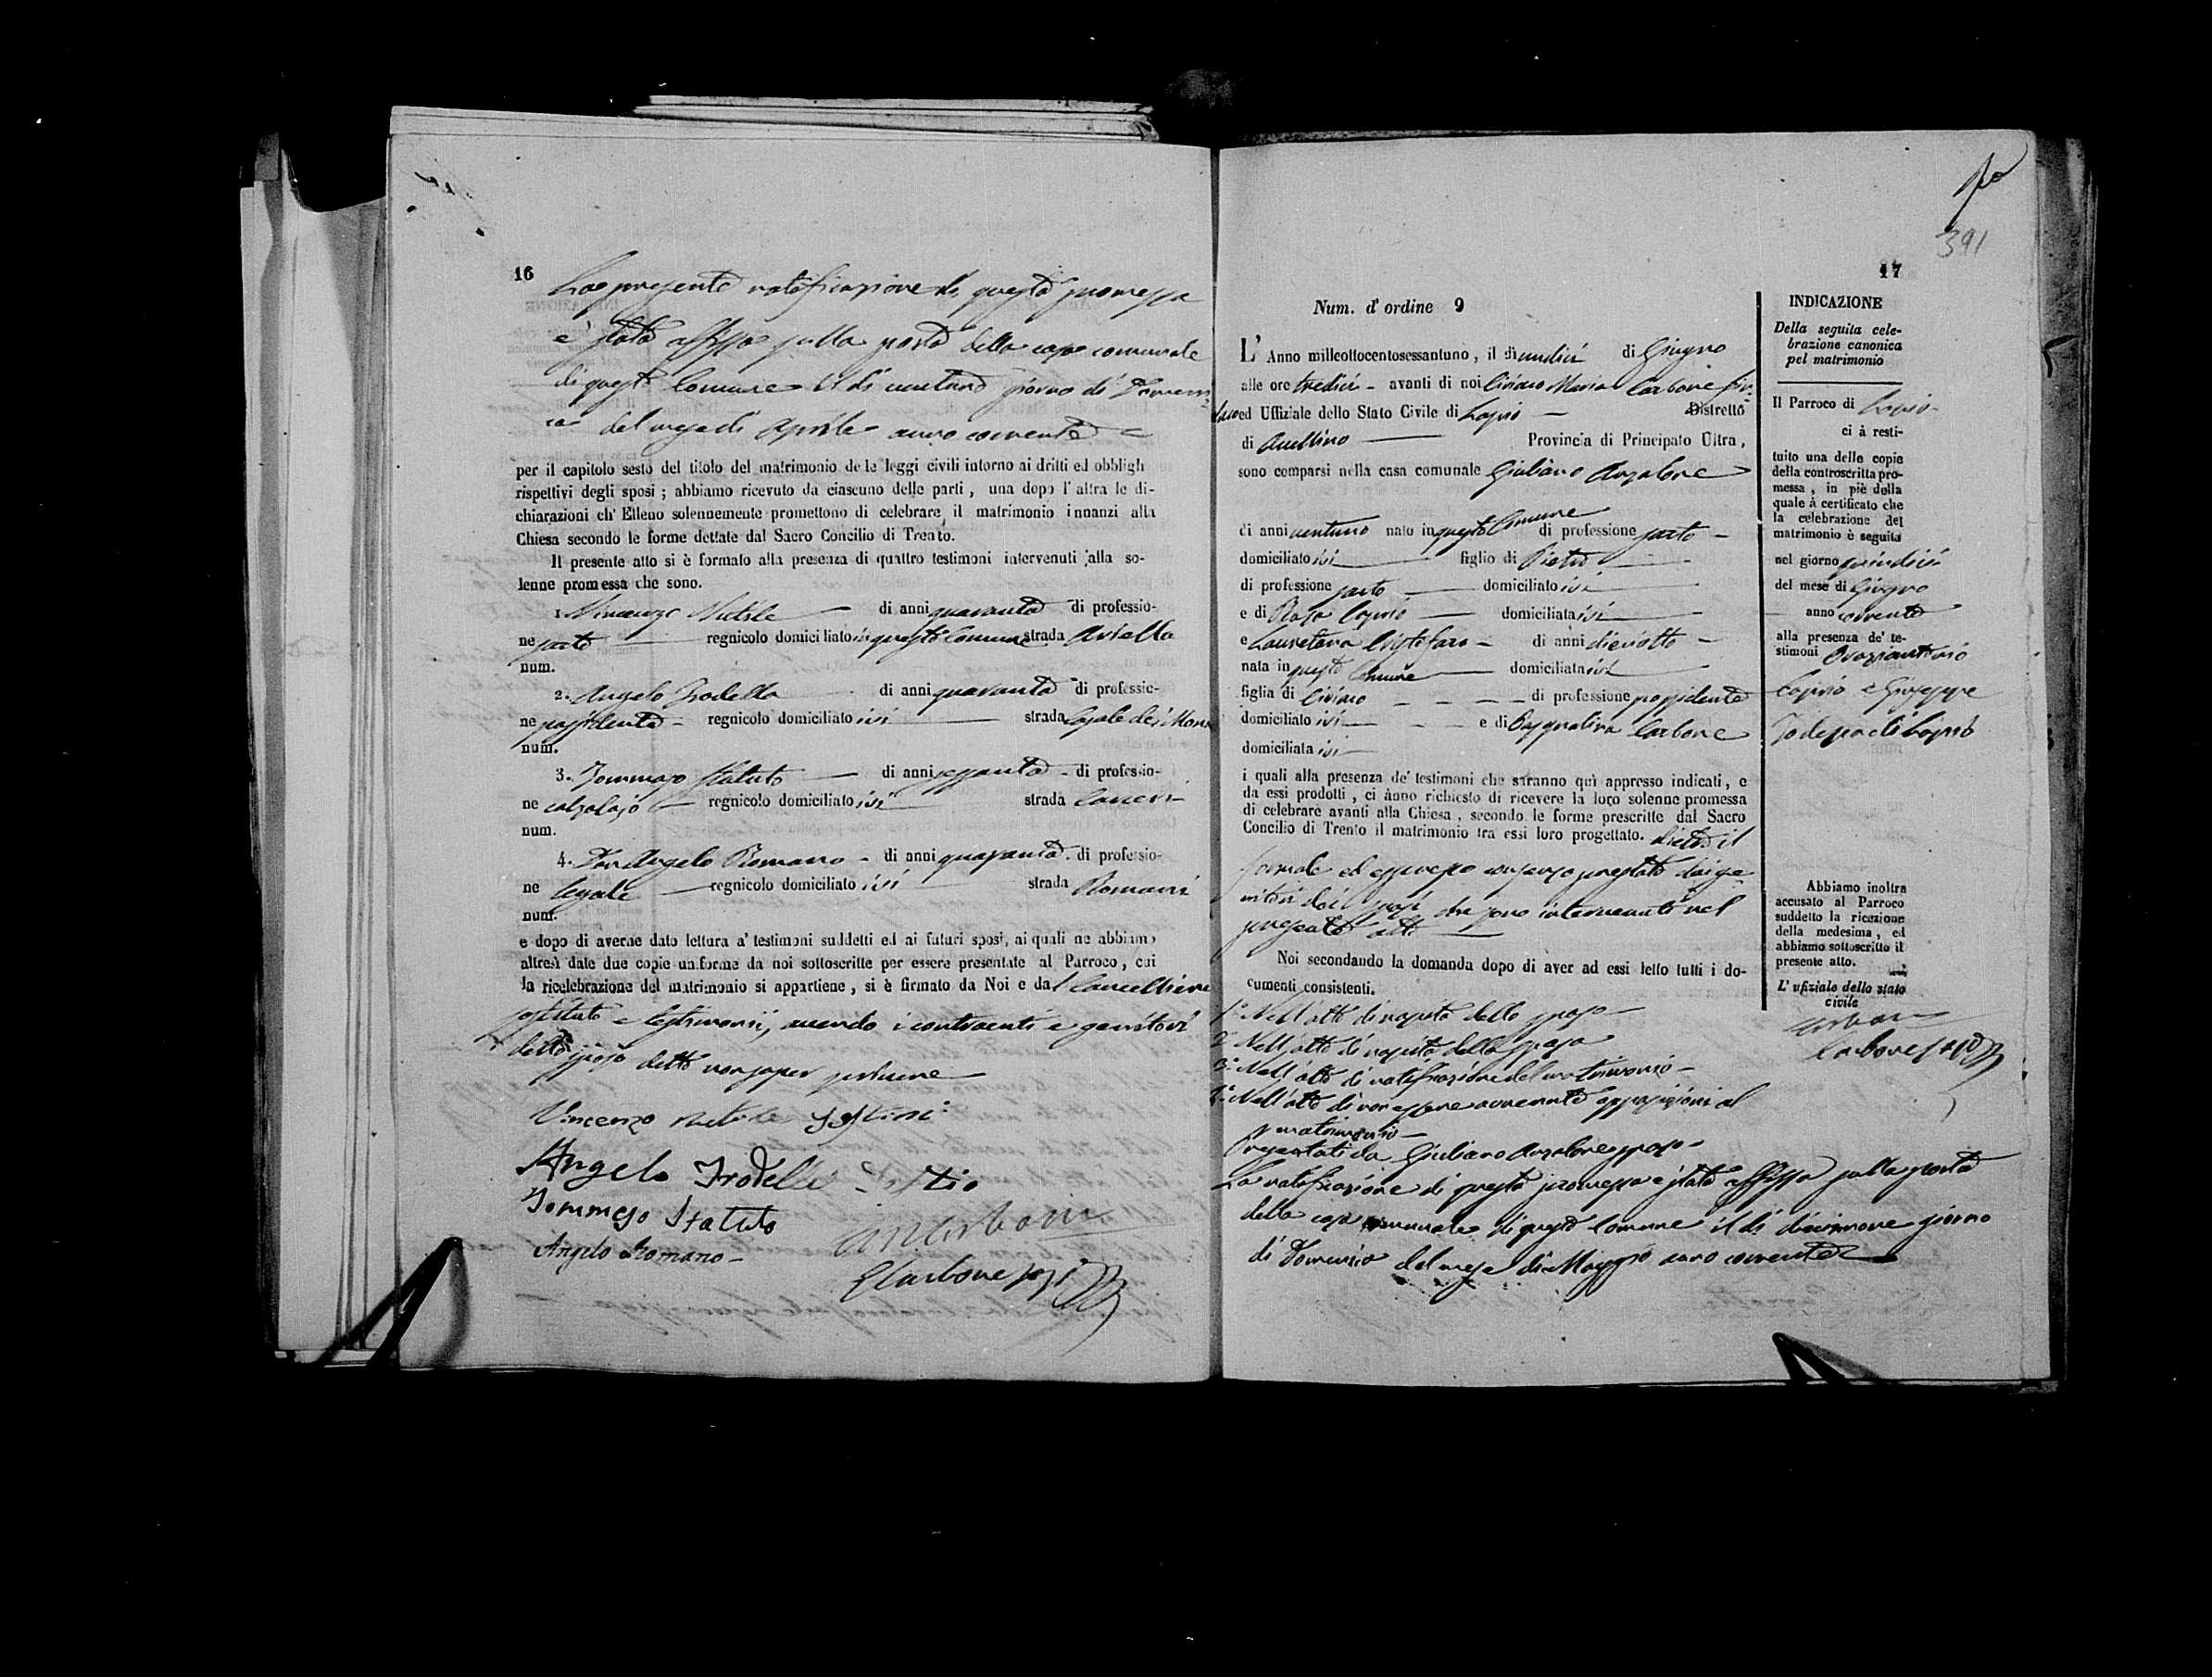 16
La presente notificazione di questa promessa
è stata affissa sulla porta della casa comunale
di questo Comune il dì ventuno giorno di Domeni-
ca del mese di Aprile anno corrente
per il capitolo sesto del titolo del matrimonio de le leggi civili intorno ai dritti ed obblighi
rispettivi degli sposi ; abbiamo ricevuto da ciascuno delle parti , una dopo l' altra le di-
chiarazioni ch' Elleno solennemente promettono di celebrare il matrimonio innanzi alla
Chiesa secondo le forme dettate dal Sacro Concilio di Trento.
Il presente atto si è formato alla presenza di quattro testimoni intervenuti alla so-
lenne promessa che sono.
1. Vincenzo Natale di anni quaranta di professio-
ne sarto regnicolo domiciliato in questo Comune strada
num.
2. Angelo Irodella di anni quaranta di professio-
ne possidente regnicolo domiciliato ivi strada Casale dei
num.
3. Tommaso Statuto di anni sessanta di professio-
ne calzolajo regnicolo domiciliato ivi strada
num.
4. Don Angelo Romano di anni quaranta di professio-
ne legale regnicolo domiciliato ivi strada Romani
num.
e dopo di averne dato lettura a' testimoni suddetti ed ai futuri sposi, ai quali ne abbiamo
altresì date due copie uniforme da noi sottoscritte per essere presentate al Parroco , cui
la ricelebrazione del matrimonio si appartiene , si è firmato da Noi e dal Cancelliere
sostituto e testimonii, avendo i contraenti e genitori
dello sposo detto non saper scrivere
Vincenzo Natale
Angelo Irodella
Tommaso Statuto
Angelo Romano
Carbone
391
17
Num. d' ordine 9
L' Anno millottocentosessantuno , il dì undici di Giugno
alle ore tredici avanti di noi Ciriaco Maria Carbone Sin-
daco ed Uffiziale dello Stato Civile di Lapio Distretto
di Avellino Provincia di Principato Ultra ,
sono comparsi nella casa comunale Giuliano Anzalone
di anni ventuno nato in questo Comune di professione sarto
domiciliato ivi figlio di Pietro
di professione sarto domiciliato ivi
e di Rosa Caprio domiciliata ivi
e Lauretana Cristofaro di anni dieciotto
nata in questo Comune domiciliata ivi
figlia di Ciriaco di professione possidente
domiciliato ivi e di Pasqualina Carbone
domiciliata ivi
i quali alla presenza de' testimoni che saranno quì appresso indicati , e
da essi prodotti , ci ànno richiesto di ricevere la loro solenne promessa
di celebrare avanti alla Chiesa , secondo le forme prescritte dal Sacro
Concilio di Trento il matrimonio tra essi loro progettato. dietro il
formale ed espresso consenso prestato dai ge-
nitori dei sposi che sono intervenuti nel
presente atto
Noi secondando la domanda dopo di aver ad essi letto tutti i do-
cumenti consistenti.
1º Nell'atto di nascita dello sposo
2º Nell'atto di nascita della sposa
3º Nell'atto di notificazione del matrimonio
4º Nell'atto di non essere avvenute opposizioni al
matrimonio
Presentati da Giuliano Anzalone sposo
La notificazione di questa promessa è stata affissa sulla porta
della casa comunale di questo Comune il dì diecinnove giorno
di Domenica del mese di Maggio anno corrente
INDICAZIONE
Della seguita cele-
brazione canonica
pel matrimonio
Il Parroco di Lapio
ci à resti-
tuito una delle copie
della controscritta pro-
messa , in piè della
quale à certificato che
la celebrazione del
matrimonio è seguita
nel giorno quindici
del mese di Giugno
anno corrente
alla presenza de' te-
stimoni Oraziantonio
Caprio e Giuseppe
di Lapio
Abbiamo inoltre
accusato al Parroco
suddetto la ricezione
della medesima , ed
abbiamo sottoscritto il
presente atto.
L' ufiziale dello stato
civile
Carbone